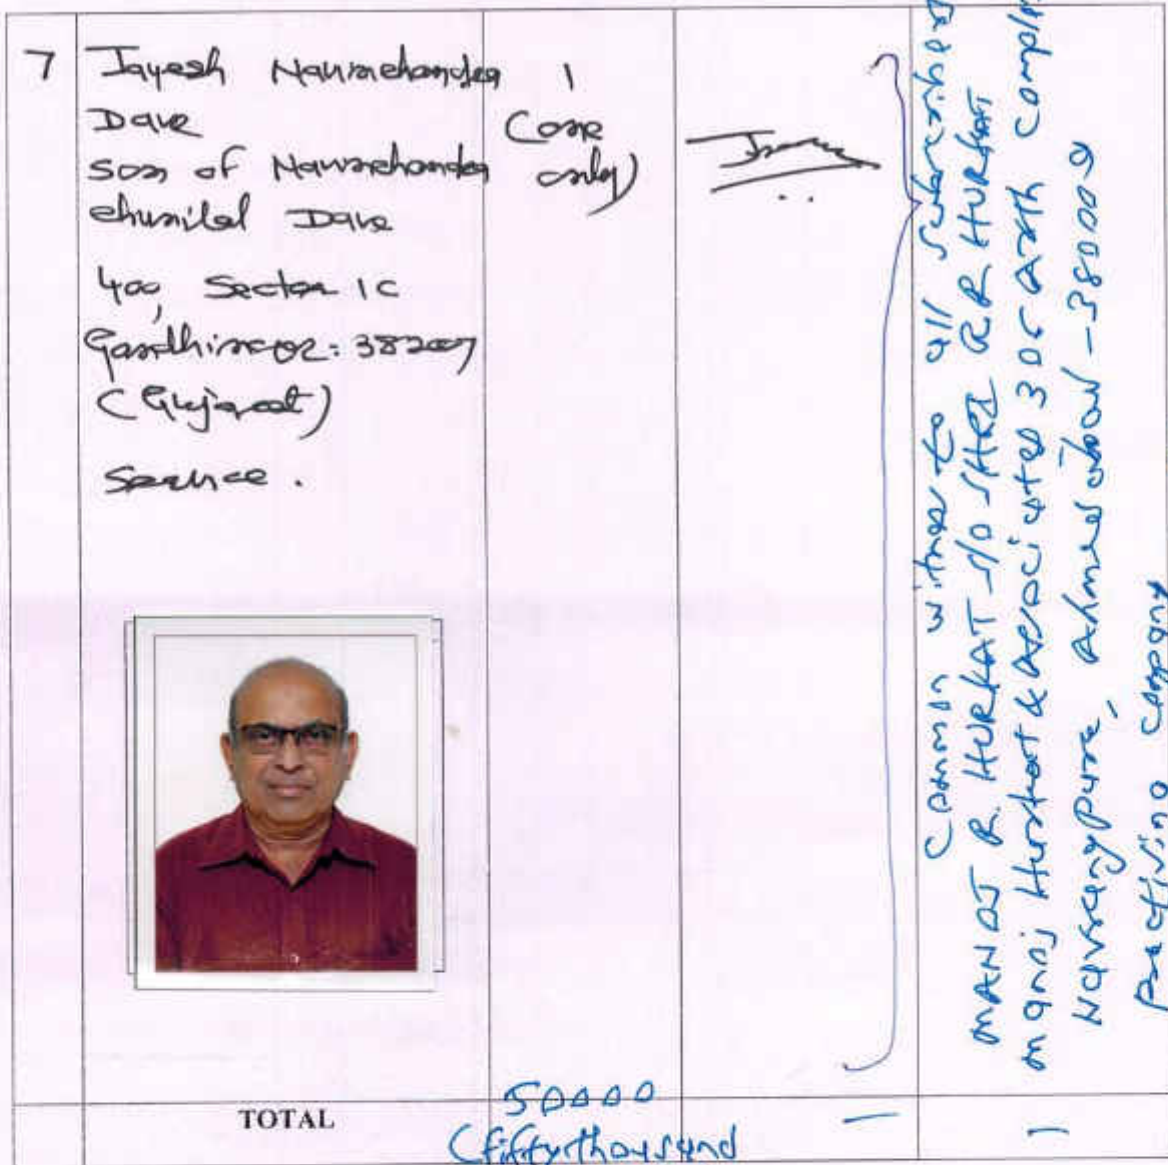 7 Jayesh Navinchandra 1
Dave (One
son of Navinchandra only)
chunilal Dave
400, Sector 1C
Gandhinagar: 382007
(Gujarat)
Service.
Common witness to all subscribers
MANOJ R. HURKAT S/o SHRI R R HURKAT
Manoj Hurkat & Associates 306 Arth Compl
Navrangpura, Ahmedabad - 380009
Practising Company
TOTAL 50000 1 1
(fifty thousand